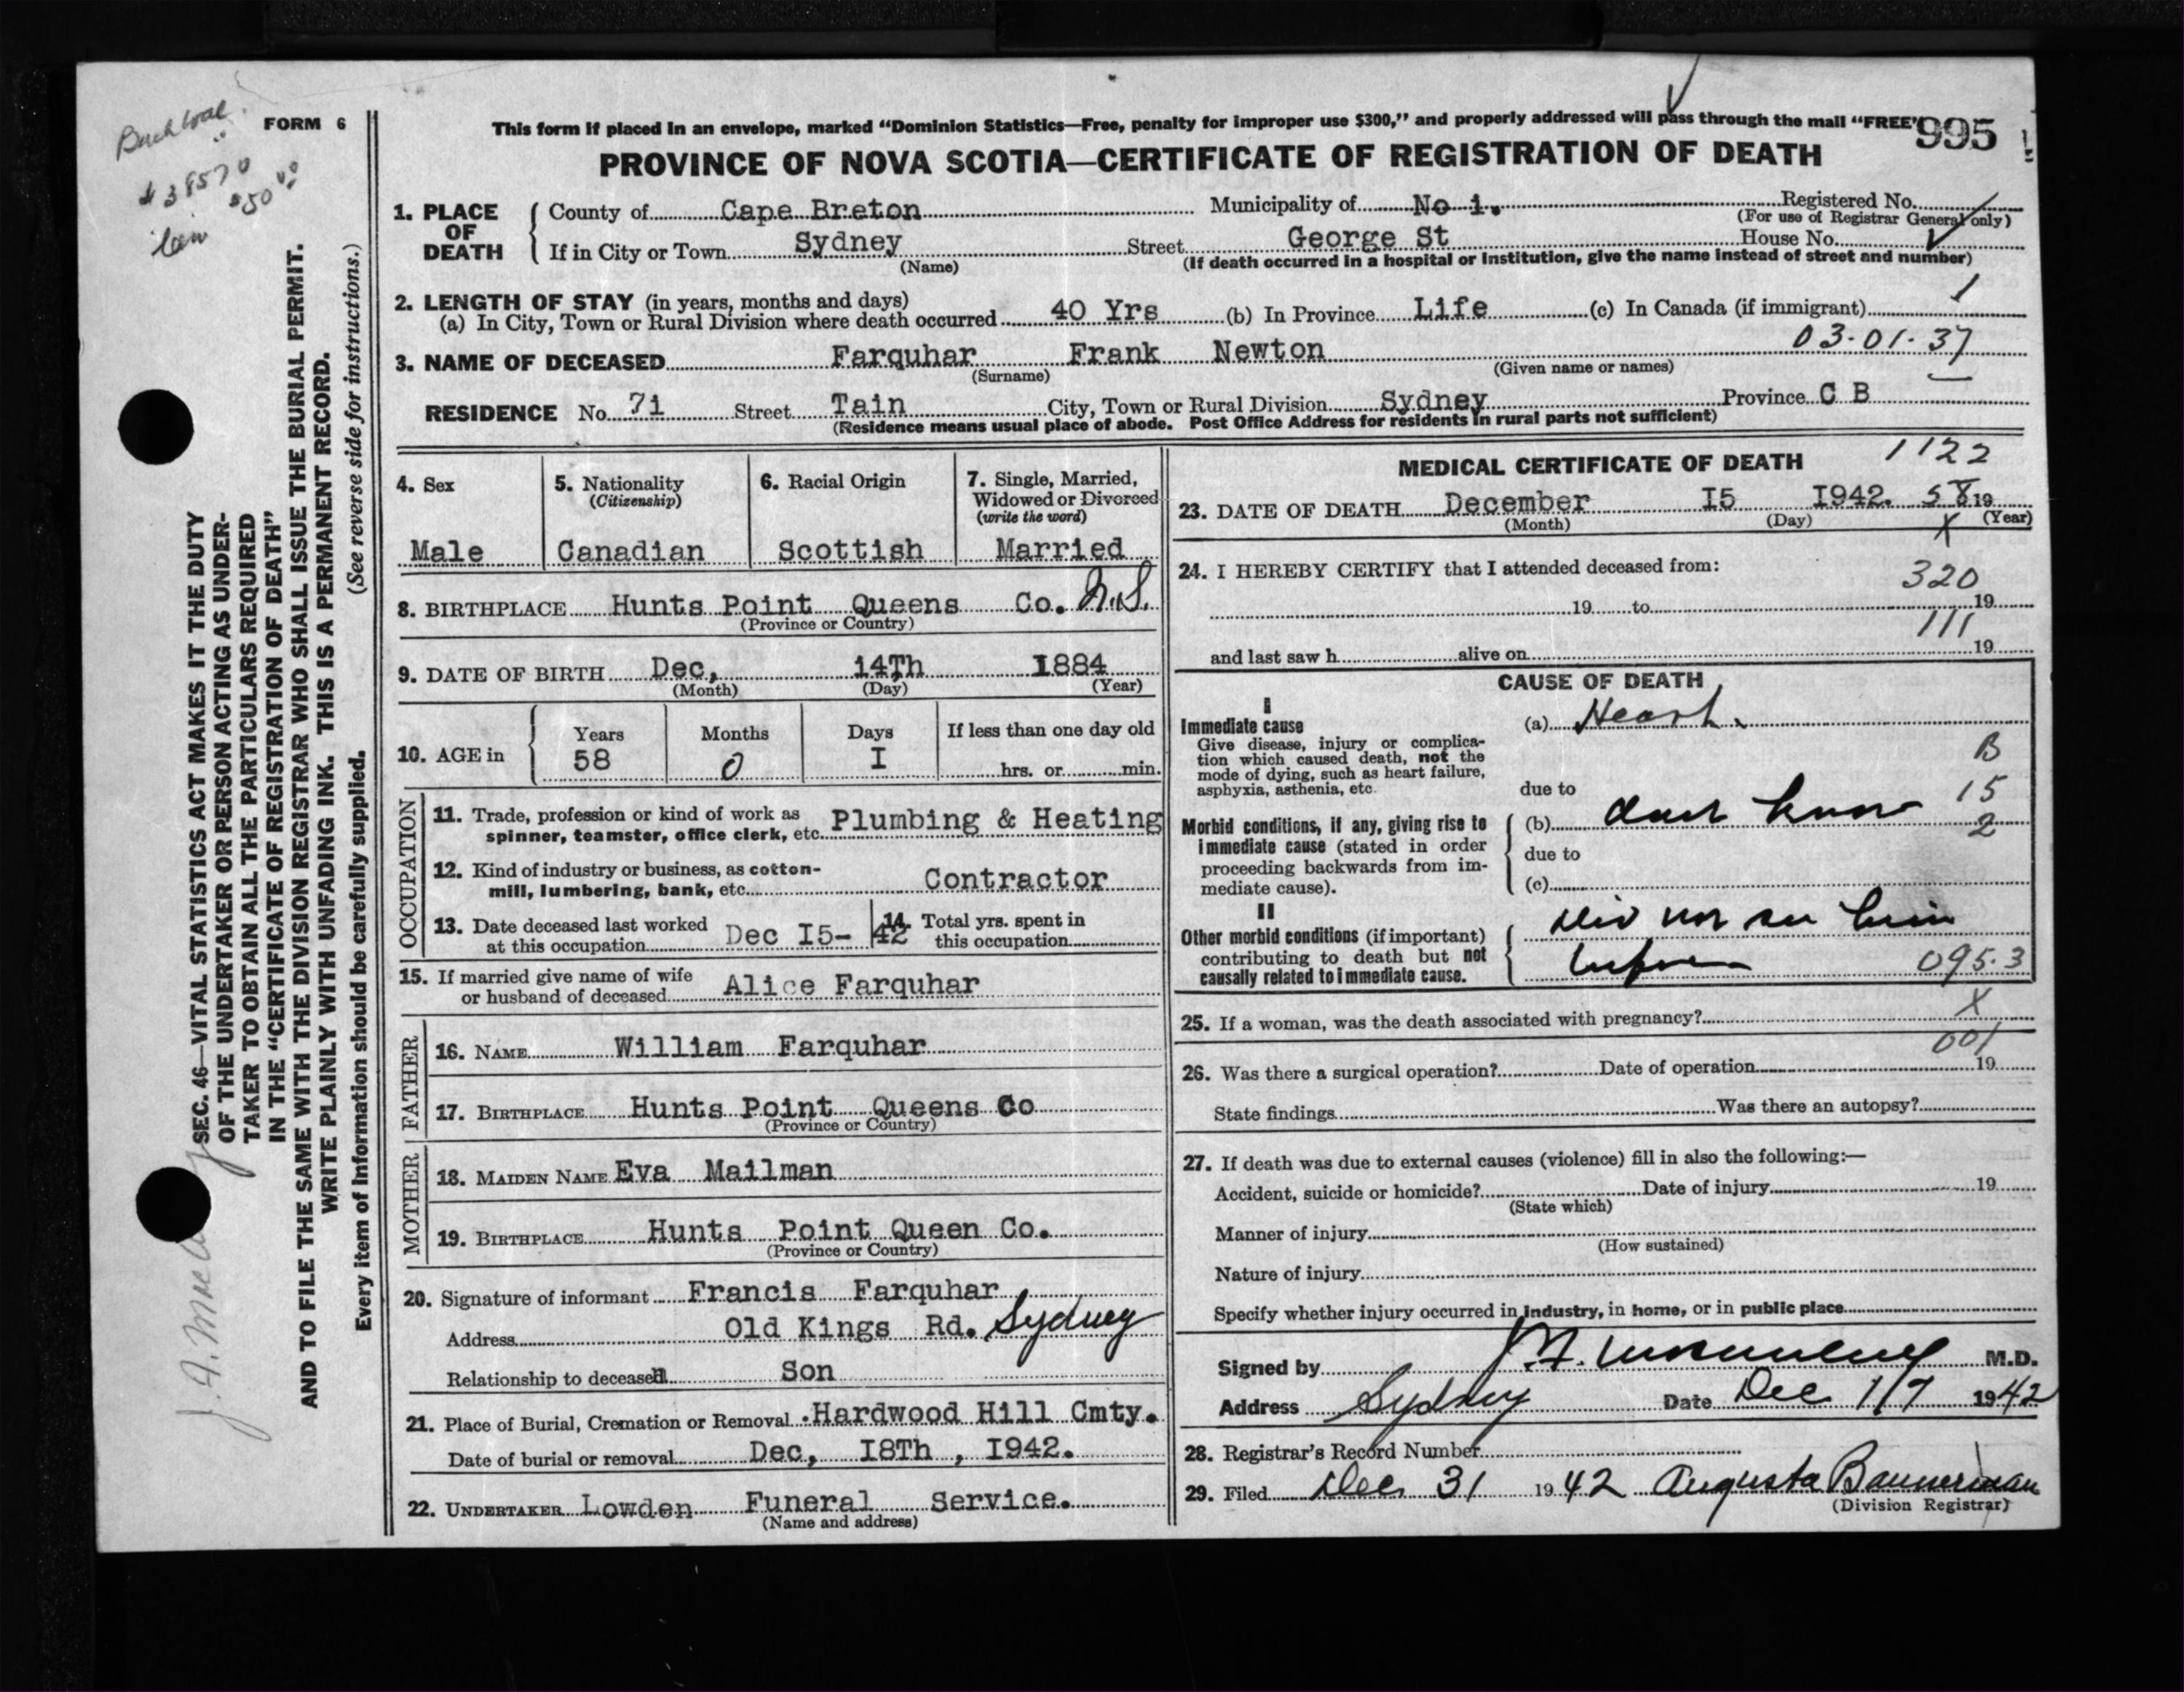 FORM 6
This form if placed in an envelope, marked “Dominion Statistics—Free, penalty for improper use $300,” and properly addressed will pass through the mail “FREE”
995
PROVINCE OF NOVA SCOTIA—CERTIFICATE OF REGISTRATION OF DEATH
1. PLACE OF DEATH
County of Cape Breton Municipality of No 1. Registered No.
(For use of Registrar General only)
If in City or Town Sydney Street George St House No.
(Name) (If death occurred in a hospital or institution, give the name instead of street and number)
2. LENGTH OF STAY (in years, months and days)
(a) In City, Town or Rural Division where death occurred 40 Yrs (b) In Province Life (c) In Canada (if immigrant)
03-01-37
3. NAME OF DECEASED Farquhar Frank Newton
(Surname) (Given name or names)
RESIDENCE No. 71 Street Tain City, Town or Rural Division Sydney Province C B
(Residence means usual place of abode. Post Office Address for residents in rural parts not sufficient)
4. Sex
Male
5. Nationality
(Citizenship)
Canadian
6. Racial Origin
Scottish
7. Single, Married,
Widowed or Divorced
(write the word)
Married
8. BIRTHPLACE Hunts Point Queens Co. N.S.
(Province or Country)
9. DATE OF BIRTH Dec, 14Th 1884
(Month) (Day) (Year)
10. AGE in
Years Months Days If less than one day old
58 0 I hrs. or min.
OCCUPATION
11. Trade, profession or kind of work as
spinner, teamster, office clerk, etc. Plumbing & Heating
12. Kind of industry or business, as cotton-
mill, lumbering, bank, etc. Contractor
13. Date deceased last worked
at this occupation Dec I5- 42
14. Total yrs. spent in
this occupation
15. If married give name of wife
or husband of deceased Alice Farquhar
FATHER
16. NAME William Farquhar
17. BIRTHPLACE Hunts Point Queens Co
(Province or Country)
MOTHER
18. MAIDEN NAME Eva Mailman
19. BIRTHPLACE Hunts Point Queen Co.
(Province or Country)
20. Signature of informant Francis Farquhar
Address Old Kings Rd. Sydney
Relationship to deceased Son
21. Place of Burial, Cremation or Removal Hardwood Hill Cmty.
Date of burial or removal Dec, I8Th , I942.
22. UNDERTAKER Lowden Funeral Service.
(Name and address)
MEDICAL CERTIFICATE OF DEATH
1122
23. DATE OF DEATH December I5 I942. 58 19
(Month) (Day) (Year)
X
24. I HEREBY CERTIFY that I attended deceased from:
320
19 to 19
111
and last saw h alive on 19
CAUSE OF DEATH
I
Immediate cause
Give disease, injury or complica-
tion which caused death, not the
mode of dying, such as heart failure,
asphyxia, asthenia, etc.
(a) Heart
B
due to
15
Morbid conditions, if any, giving rise to
immediate cause (stated in order
proceeding backwards from im-
mediate cause).
(b) dont know
2
due to
(c)
II
Other morbid conditions (if important)
contributing to death but not
causally related to immediate cause.
Did not see him
before
095.3
X
25. If a woman, was the death associated with pregnancy?
001
26. Was there a surgical operation? Date of operation 19
State findings Was there an autopsy?
27. If death was due to external causes (violence) fill in also the following:—
Accident, suicide or homicide? Date of injury 19
(State which)
Manner of injury
(How sustained)
Nature of injury
Specify whether injury occurred in industry, in home, or in public place
Signed by M.D.
Address Sydney Date Dec 17 1942
28. Registrar's Record Number
29. Filed Dec 31 1942 Augusta Bannerman
(Division Registrar)
SEC. 46—VITAL STATISTICS ACT MAKES IT THE DUTY
OF THE UNDERTAKER OR PERSON ACTING AS UNDER-
TAKER TO OBTAIN ALL THE PARTICULARS REQUIRED
IN THE “CERTIFICATE OF REGISTRATION OF DEATH”
AND TO FILE THE SAME WITH THE DIVISION REGISTRAR WHO SHALL ISSUE THE BURIAL PERMIT.
WRITE PLAINLY WITH UNFADING INK. THIS IS A PERMANENT RECORD.
Every item of Information should be carefully supplied. (See reverse side for instructions.)